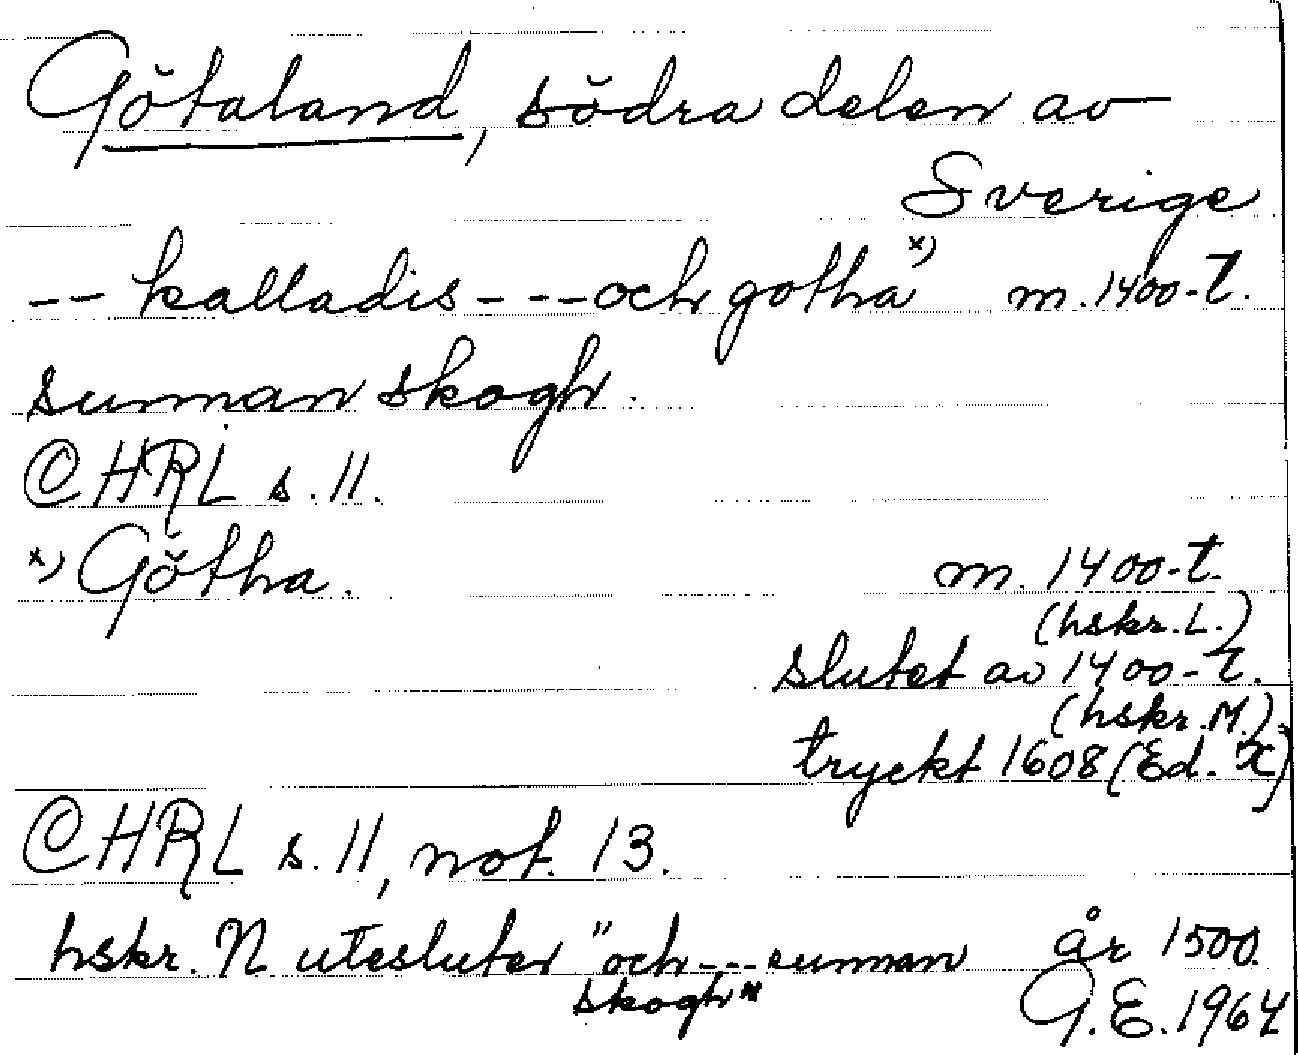 Götaland, södra delen av
Sverige
-- kalladis --- och gotha x) m. 1400-t.
sunnan skogh.
CHRL s. 11.
x) Götha. m. 1400-t.
(hskr. L.)
slutet av 1400-t.
(hskr. M.)
tryckt 1608 (Ed. X)
CHRL s. 11, not. 13.
hskr. N utesluter "och --- sunnan år 1500.
skogh" G.E. 1964